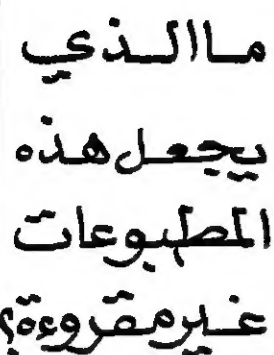 ما الذي
يجعل هذه
المطبوعات
غير مقروءة؟